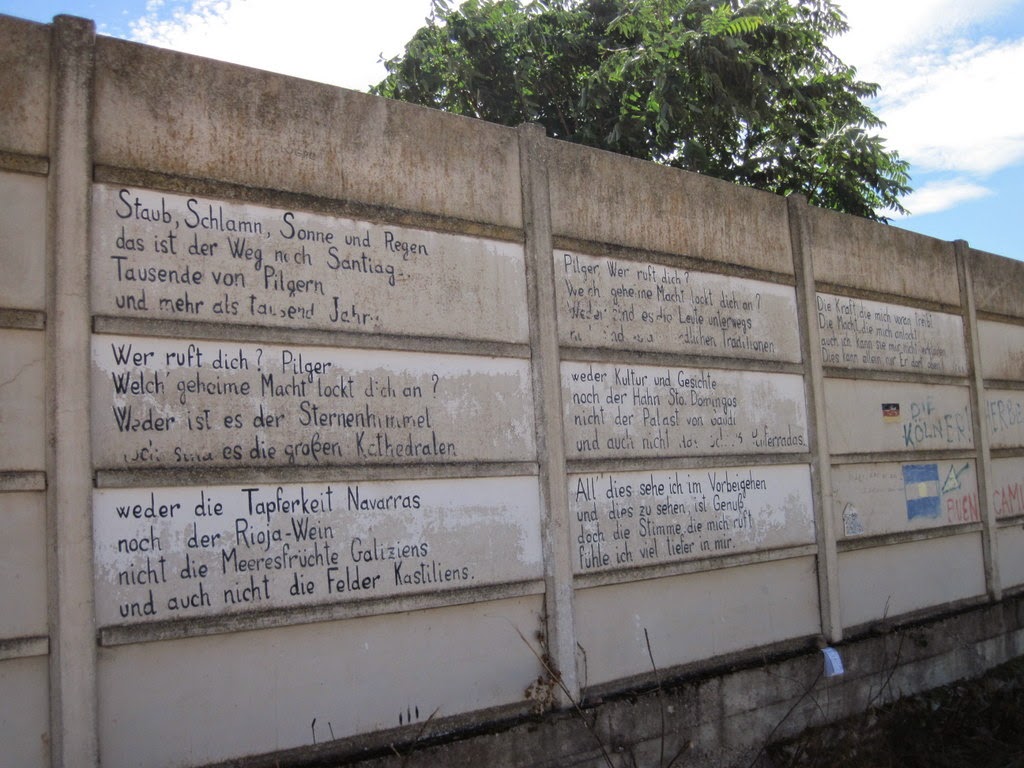 Staub, Schlamn, Sonne und Regen
das ist der Weg nach Santiag
Tausende von Pilgern
und mehr als tausend Jahr
Wer ruft dich? Pilger
Welch geheime Macht lockt dich an?
Weder ist es der Sternenhimmel
es die großen Kathedralen
weder die Tapferkeit Navarras
noch der Rioja-Wein
nicht die Meeresfrüchte Galiziens
und auch nicht die Felder Kastiliens.
Pilger, Wer ruft dich?
Welch geheime Macht lockt dich an?
Weder sind es die Leute unterwegs
ländlichen Traditionen
weder Kultur und Gesichte
noch der Hahn Sto. Domingos
nicht der Palast von Gaudi
und auch nicht das Ponferradas.
All' dies sehe ich im Vorbeigehen
und dies zu sehen, ist Genuß
doch die Stimme, die mich ruft
fühle ich viel tiefer in mir.
Die Kraft, die mich voran treibt
Die Macht, die mich anlockt
auch ich kann sie mir nicht erklären
Dies kann allein nur Er dort oben!
DIE
KÖLNER!
BUEN CAMI